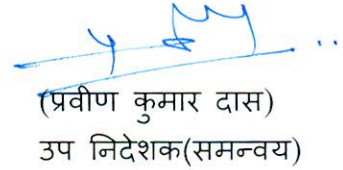 (प्रवीण कुमार दास)
उप निदेशक(समन्वय)